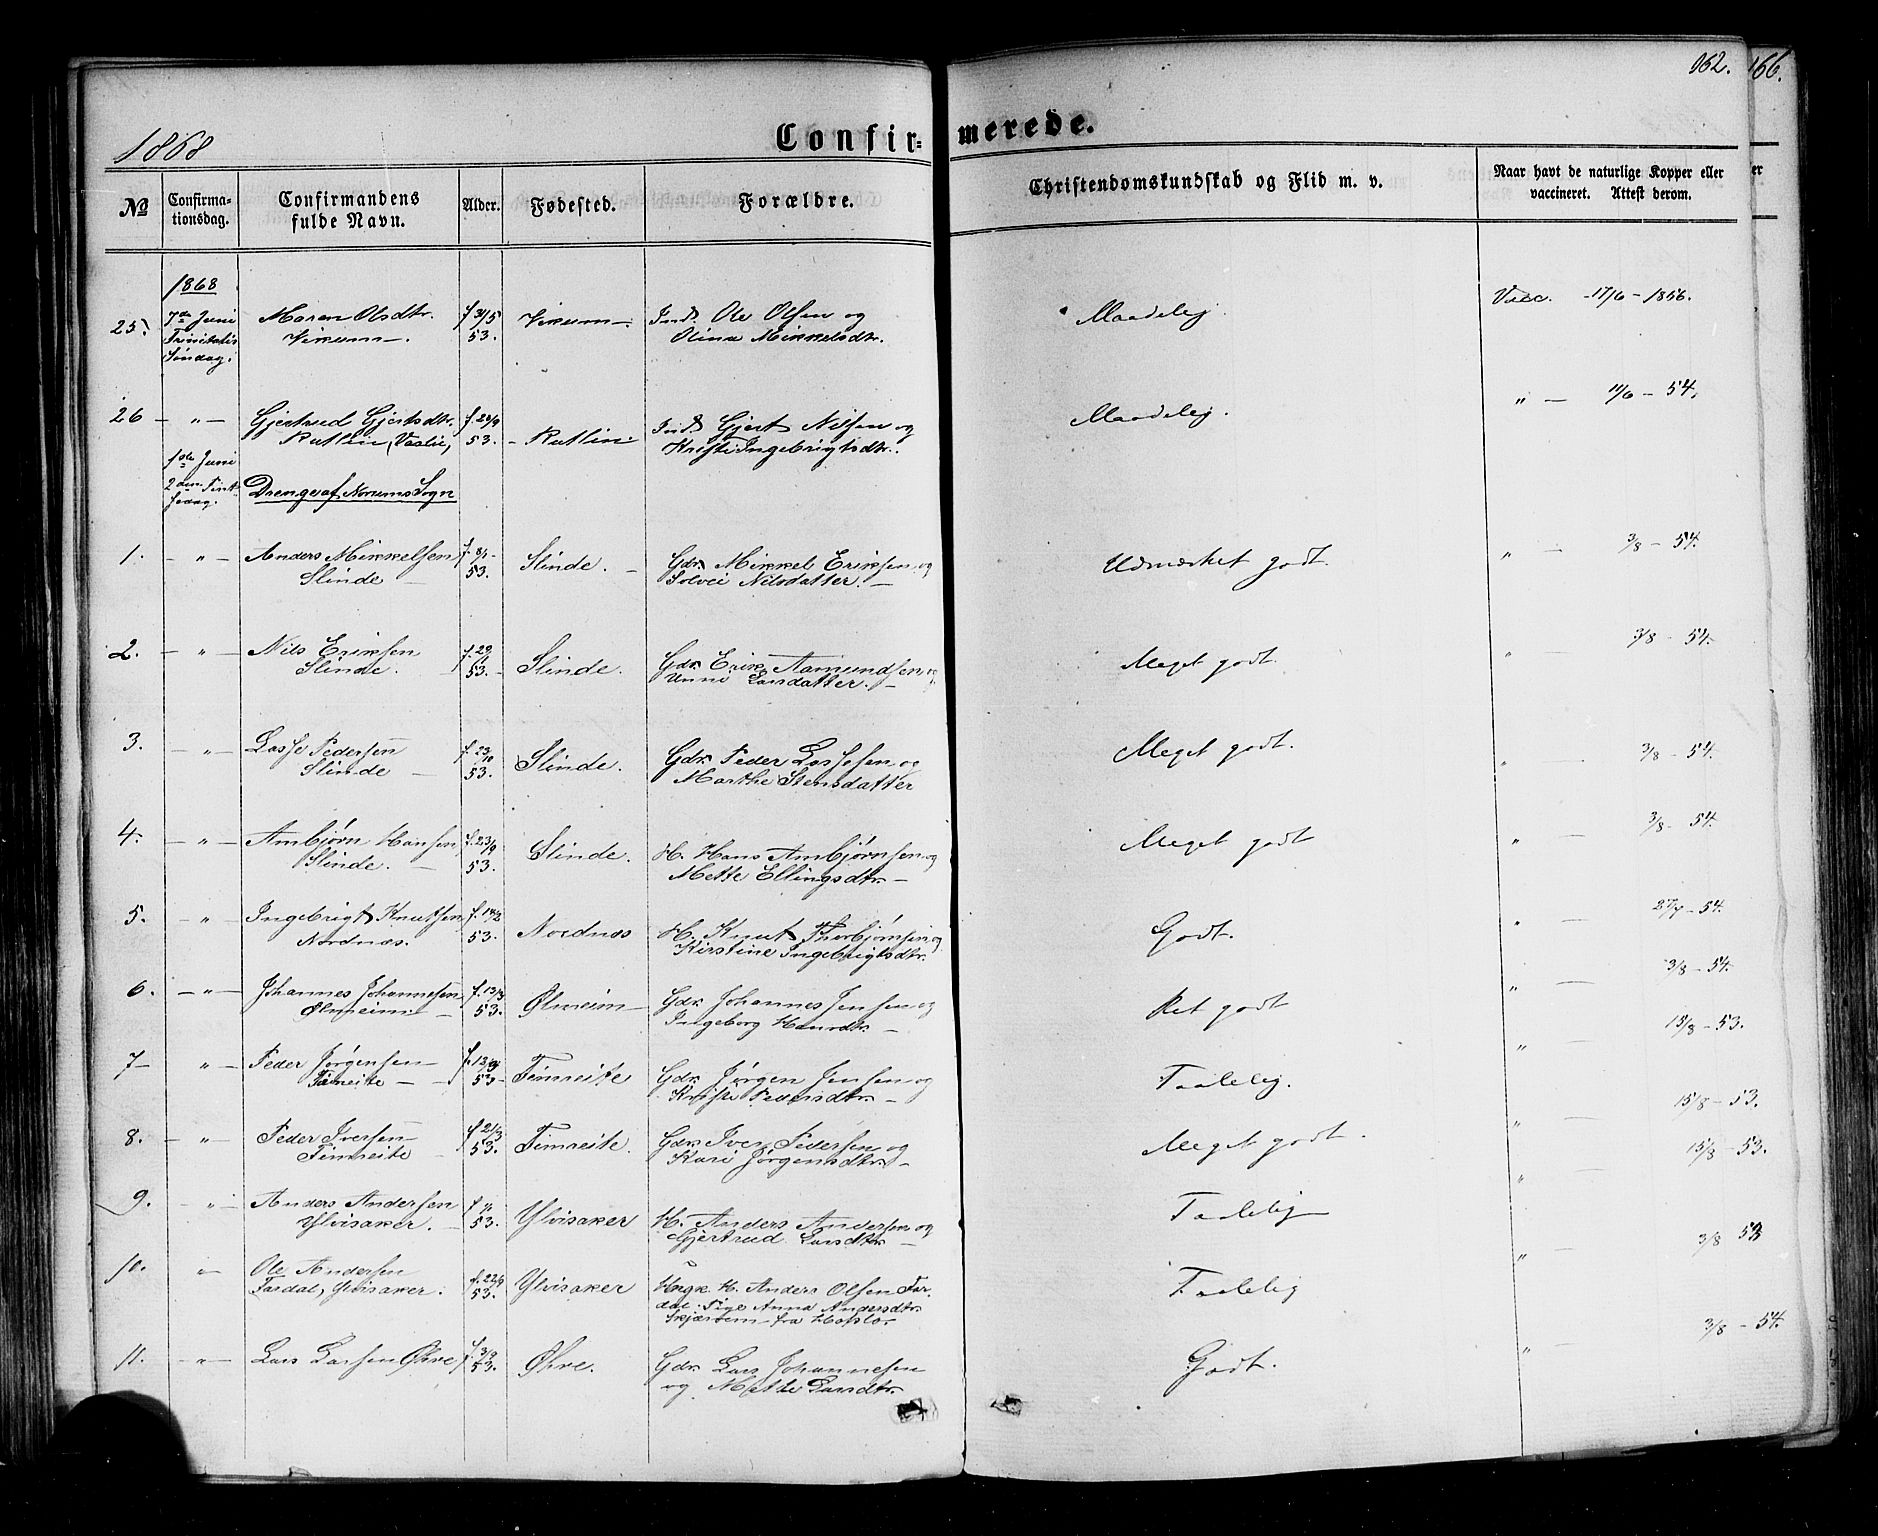 162. 166.
1868 Confir= merede.
No Confirma-tionsdag. Confirmandens fulde Navn. Alder. Fødested. Forældre. Christendomskundskab og Flid m. v. Naar havt de naturlige Kopper eller vaccineret. Attest derom.
1868
25. 7de Juni Maren Olsdtr. f 31/5 Vikum Ind. Ole Olsen og Maadelig. Vacc. 17/6 - 1856.
Trinitatis Vikum 53. Olina Mikkelsdtr.
Søndag.
26 - " - Gjertrud Gjertsdtr. f. 29/9 Rutlin Ind. Gjert Nilsen og Maadelig. " - 11/6 - 54.
Rutlin 53. Kristi Ingebrigtsdtr.
1ste Juni
2den Pint- Drenge af Norums Sogn
sedag.
1. - " - Anders Mikkelsen f. 8/1 Slinde. Gdr. Mikkel Eriksen og Udmærket godt. " - 3/8 - 54.
Slinde 53. Solvei Nilsdatter.
2. - " - Nils Eriksen f. 29/ Slinde. Gdr. Erik Aamundsen og Meget godt. " 3/8 - 54.
Slinde. 53. Unni Larsdatter.
3. - " - Lasse Pedersen f. 23/10 Slinde. Gdr. Peder Lassesen og Meget godt. " 3/8 - 54.
Slinde 53. Marthe Stensdatter
4. - " - Ambjørn Hansen f. 23/9 Slinde. H. Hans Ambjørnsen og Meget godt " - 3/8 - 54.
Slinde. 53. Mette Ellingsdtr.
5. - " - Ingebrigt Knutsen f. 14/2 Nordnæs H. Knut Thorbjørnsen og Godt. " - 27/7 - 54.
Nordnæs. 53. Kirstine Ingebrigtsdtr.
6. - " - Johannes Johannesen f. 13/3 Ølmeim Gdr. Johannes Jensen og Ret godt " - 3/8 - 54.
Ølmeim 53. Ingeborg
7 - " - Peder Jørgensen f. 13/ Timreite Gdr. Jørgen Jensen og Taalelig. " 15/8 - 53.
Timreite 53 Kristi Pedersdtr.
8. - " - Peder Iversen f 21/3 Timreite. Gdr. Iver Pedersen og Meget godt. " - 15/8 - 53.
Timreite 53. Kari Jørgensdtr.
9. - " - Anders Andersen f Ylvisaker H. Anders Andersen og Taalelig " 15/8 - 53.
Ylvisaker. 53. Gjertrud Larsdtr.
10. " Ole Andersen f. 22/9 Ylvisaker Ungk. H. Anders Olsen Far- Taalelig " 3/8 53
Fardal, Ylvisaker. 53. dal. Pige Anna Andersdtr.
fra
11. - " - Lars Larsen Øhre f. 3/9 Øhre. Gdr. Lars Johannesen Godt. " - 3/8 - 54.
53. og Mette Larsdtr.